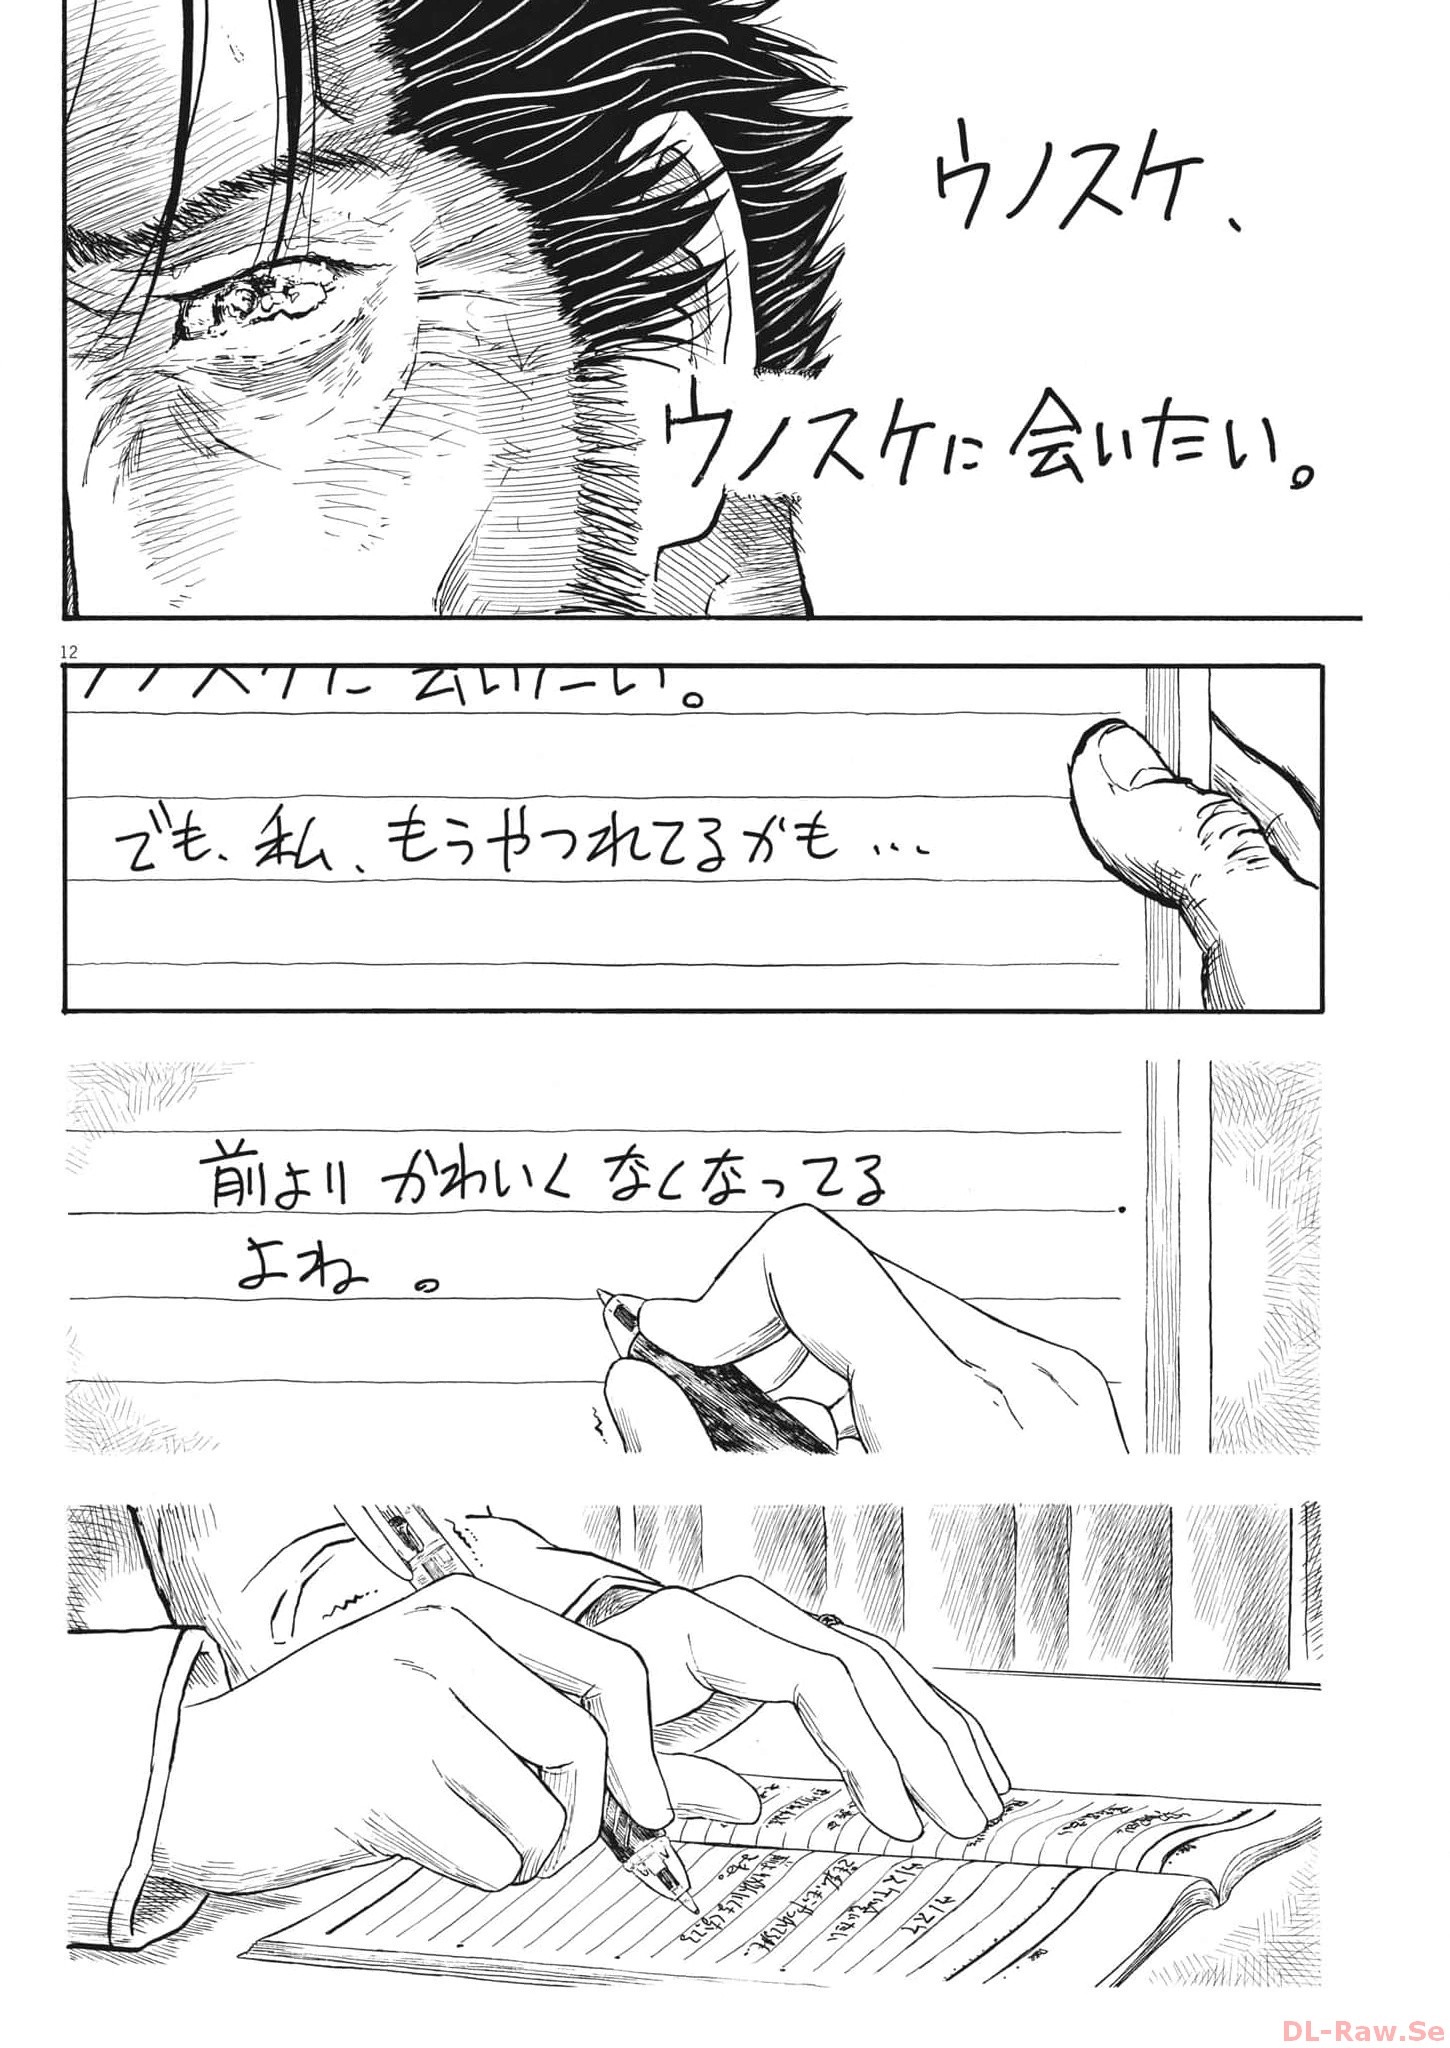 ウノスケ、
ウノスケに会いたい。
12
ウノスケに会いたい。
でも、私、もうやつれてるかも…
前よりかわいくなくなってる
よね。
DL-Raw.Se